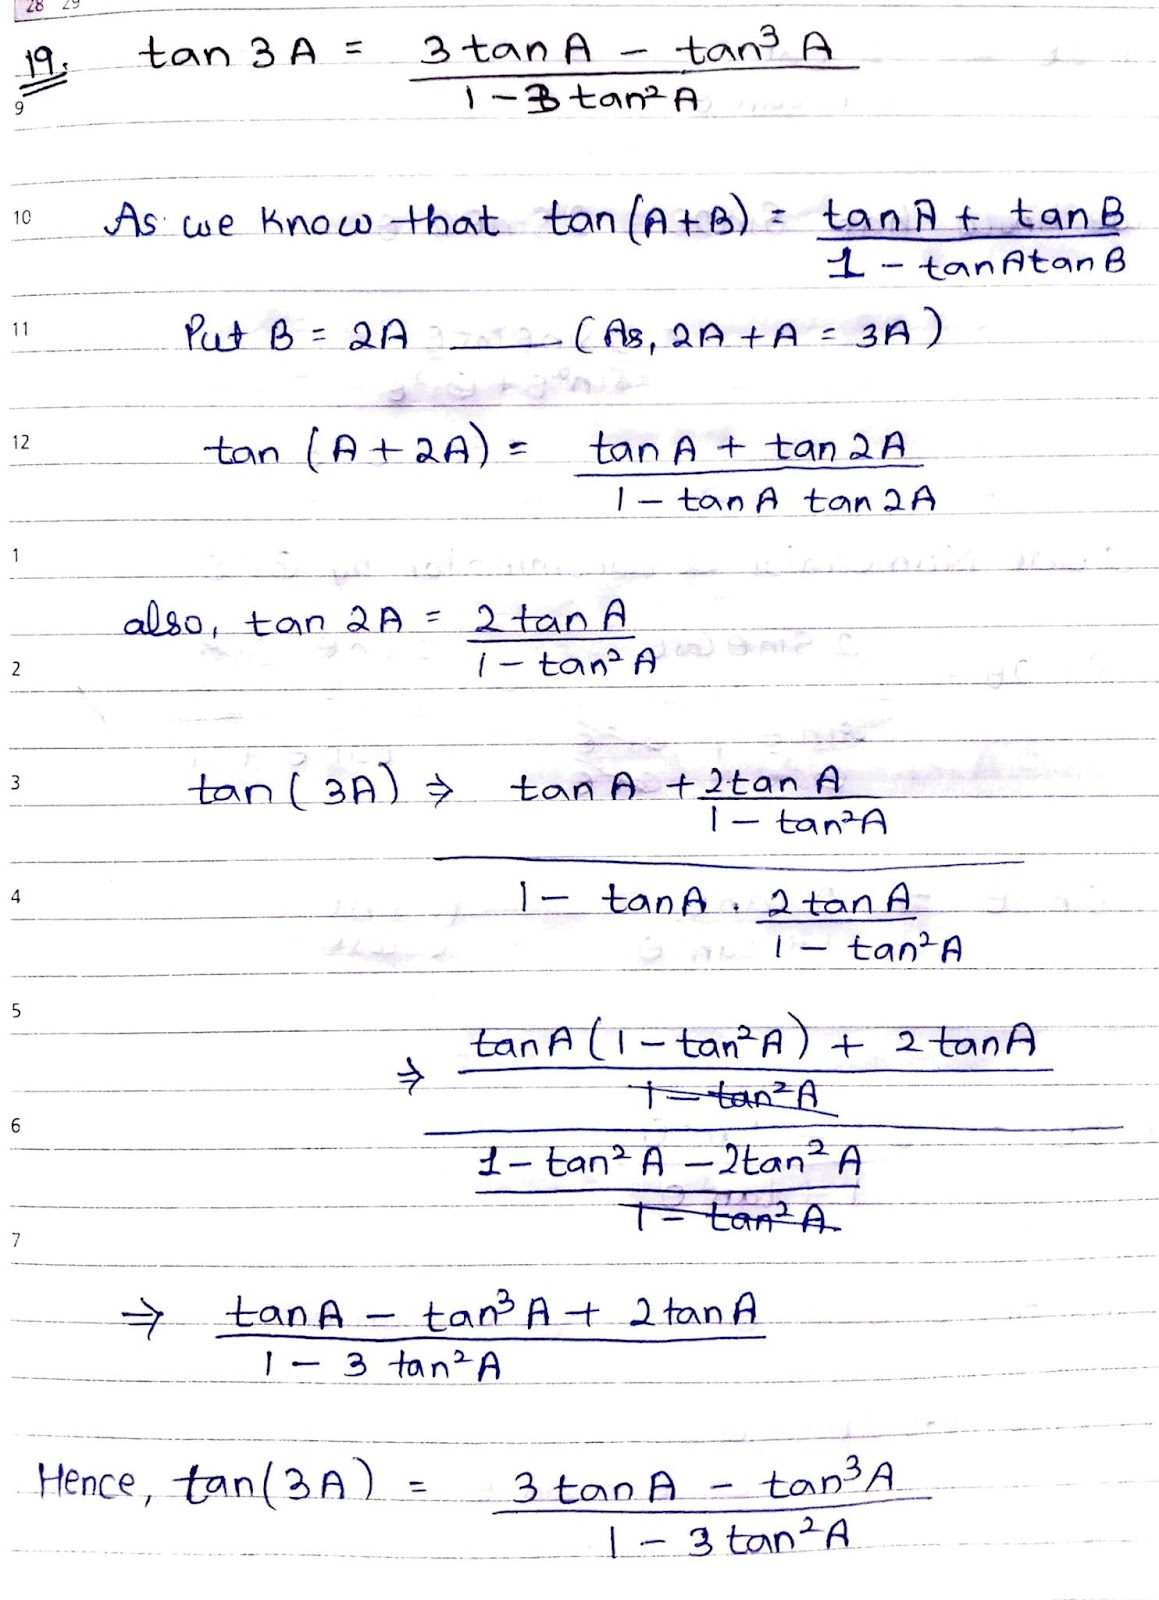 28 29
19. tan 3A = 3 tan A - tan³ A
1 - 3 tan² A
9
10 As we know that tan(A+B) = tan A + tan B
1 - tanAtanB
11 Put B = 2A — (As, 2A + A = 3A)
12 tan (A + 2A) = tan A + tan 2A
1 - tan A tan 2A
1
also, tan 2A = 2 tan A
1 - tan² A
2
3 tan (3A) ⇒ tan A + 2tan A
1 - tan²A
4 1 - tanA . 2 tan A
1 - tan²A
5
⇒ tanA (1 - tan²A) + 2 tanA
1 - tan²A
6
1 - tan² A - 2tan² A
1 - tan² A
7
⇒ tanA - tan³ A + 2 tan A
1 - 3 tan²A
Hence, tan(3A) = 3 tan A - tan³A
1 - 3 tan²A